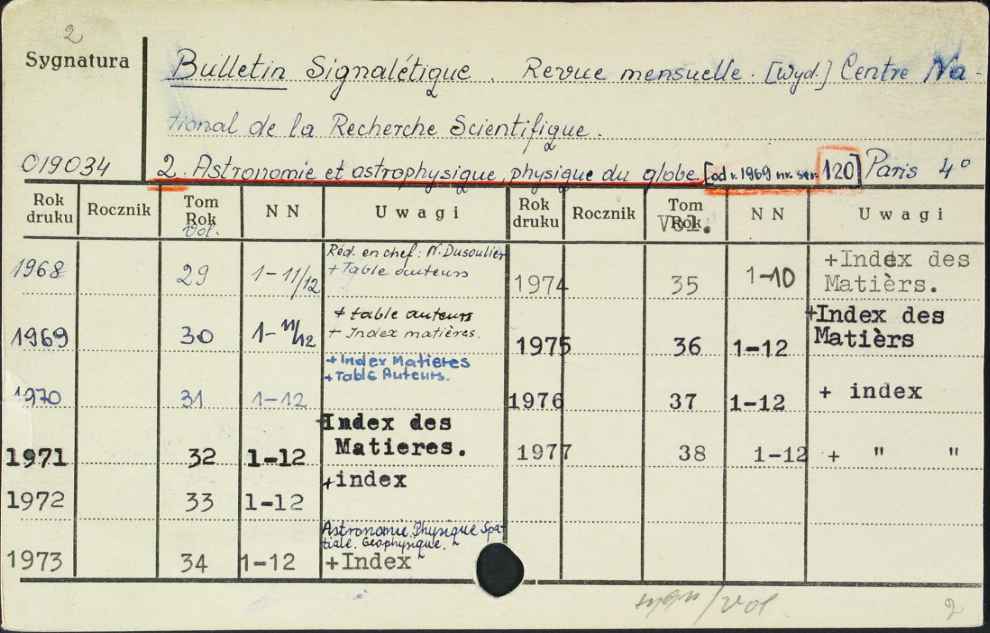 2
Sygnatura
Bulletin Signalétique. Revue mensuelle. [Wyd.] Centre Na-
tional de la Recherche Scientifique.
019034 2. Astronomie et astrophysique, physique du globe [od r. 1969 nr. ser. 120] Paris 4°
Rok druku Rocznik Tom Rok Vol. N N Uwagi Rok druku Rocznik Tom Rok Vol. N N Uwagi
1968 29 1-11/12 Réd. en chef: N. Dusoulier
+ Table auteurs
1969 30 1-11/12 + table auteurs
+ Index matières.
1970 31 1-12 + Index Matieres
+ Table Auteurs.
1971 32 1-12 +Index des
Matieres.
1972 33 1-12 +index
1973 34 1-12 Astronomie. Physique Spa-
tiale. Géophysique.
+Index
1974 35 1-10 +Index des
Matièrs.
1975 36 1-12 +Index des
Matièrs
1976 37 1-12 + index
1977 38 1-12 + " "
/vol
2